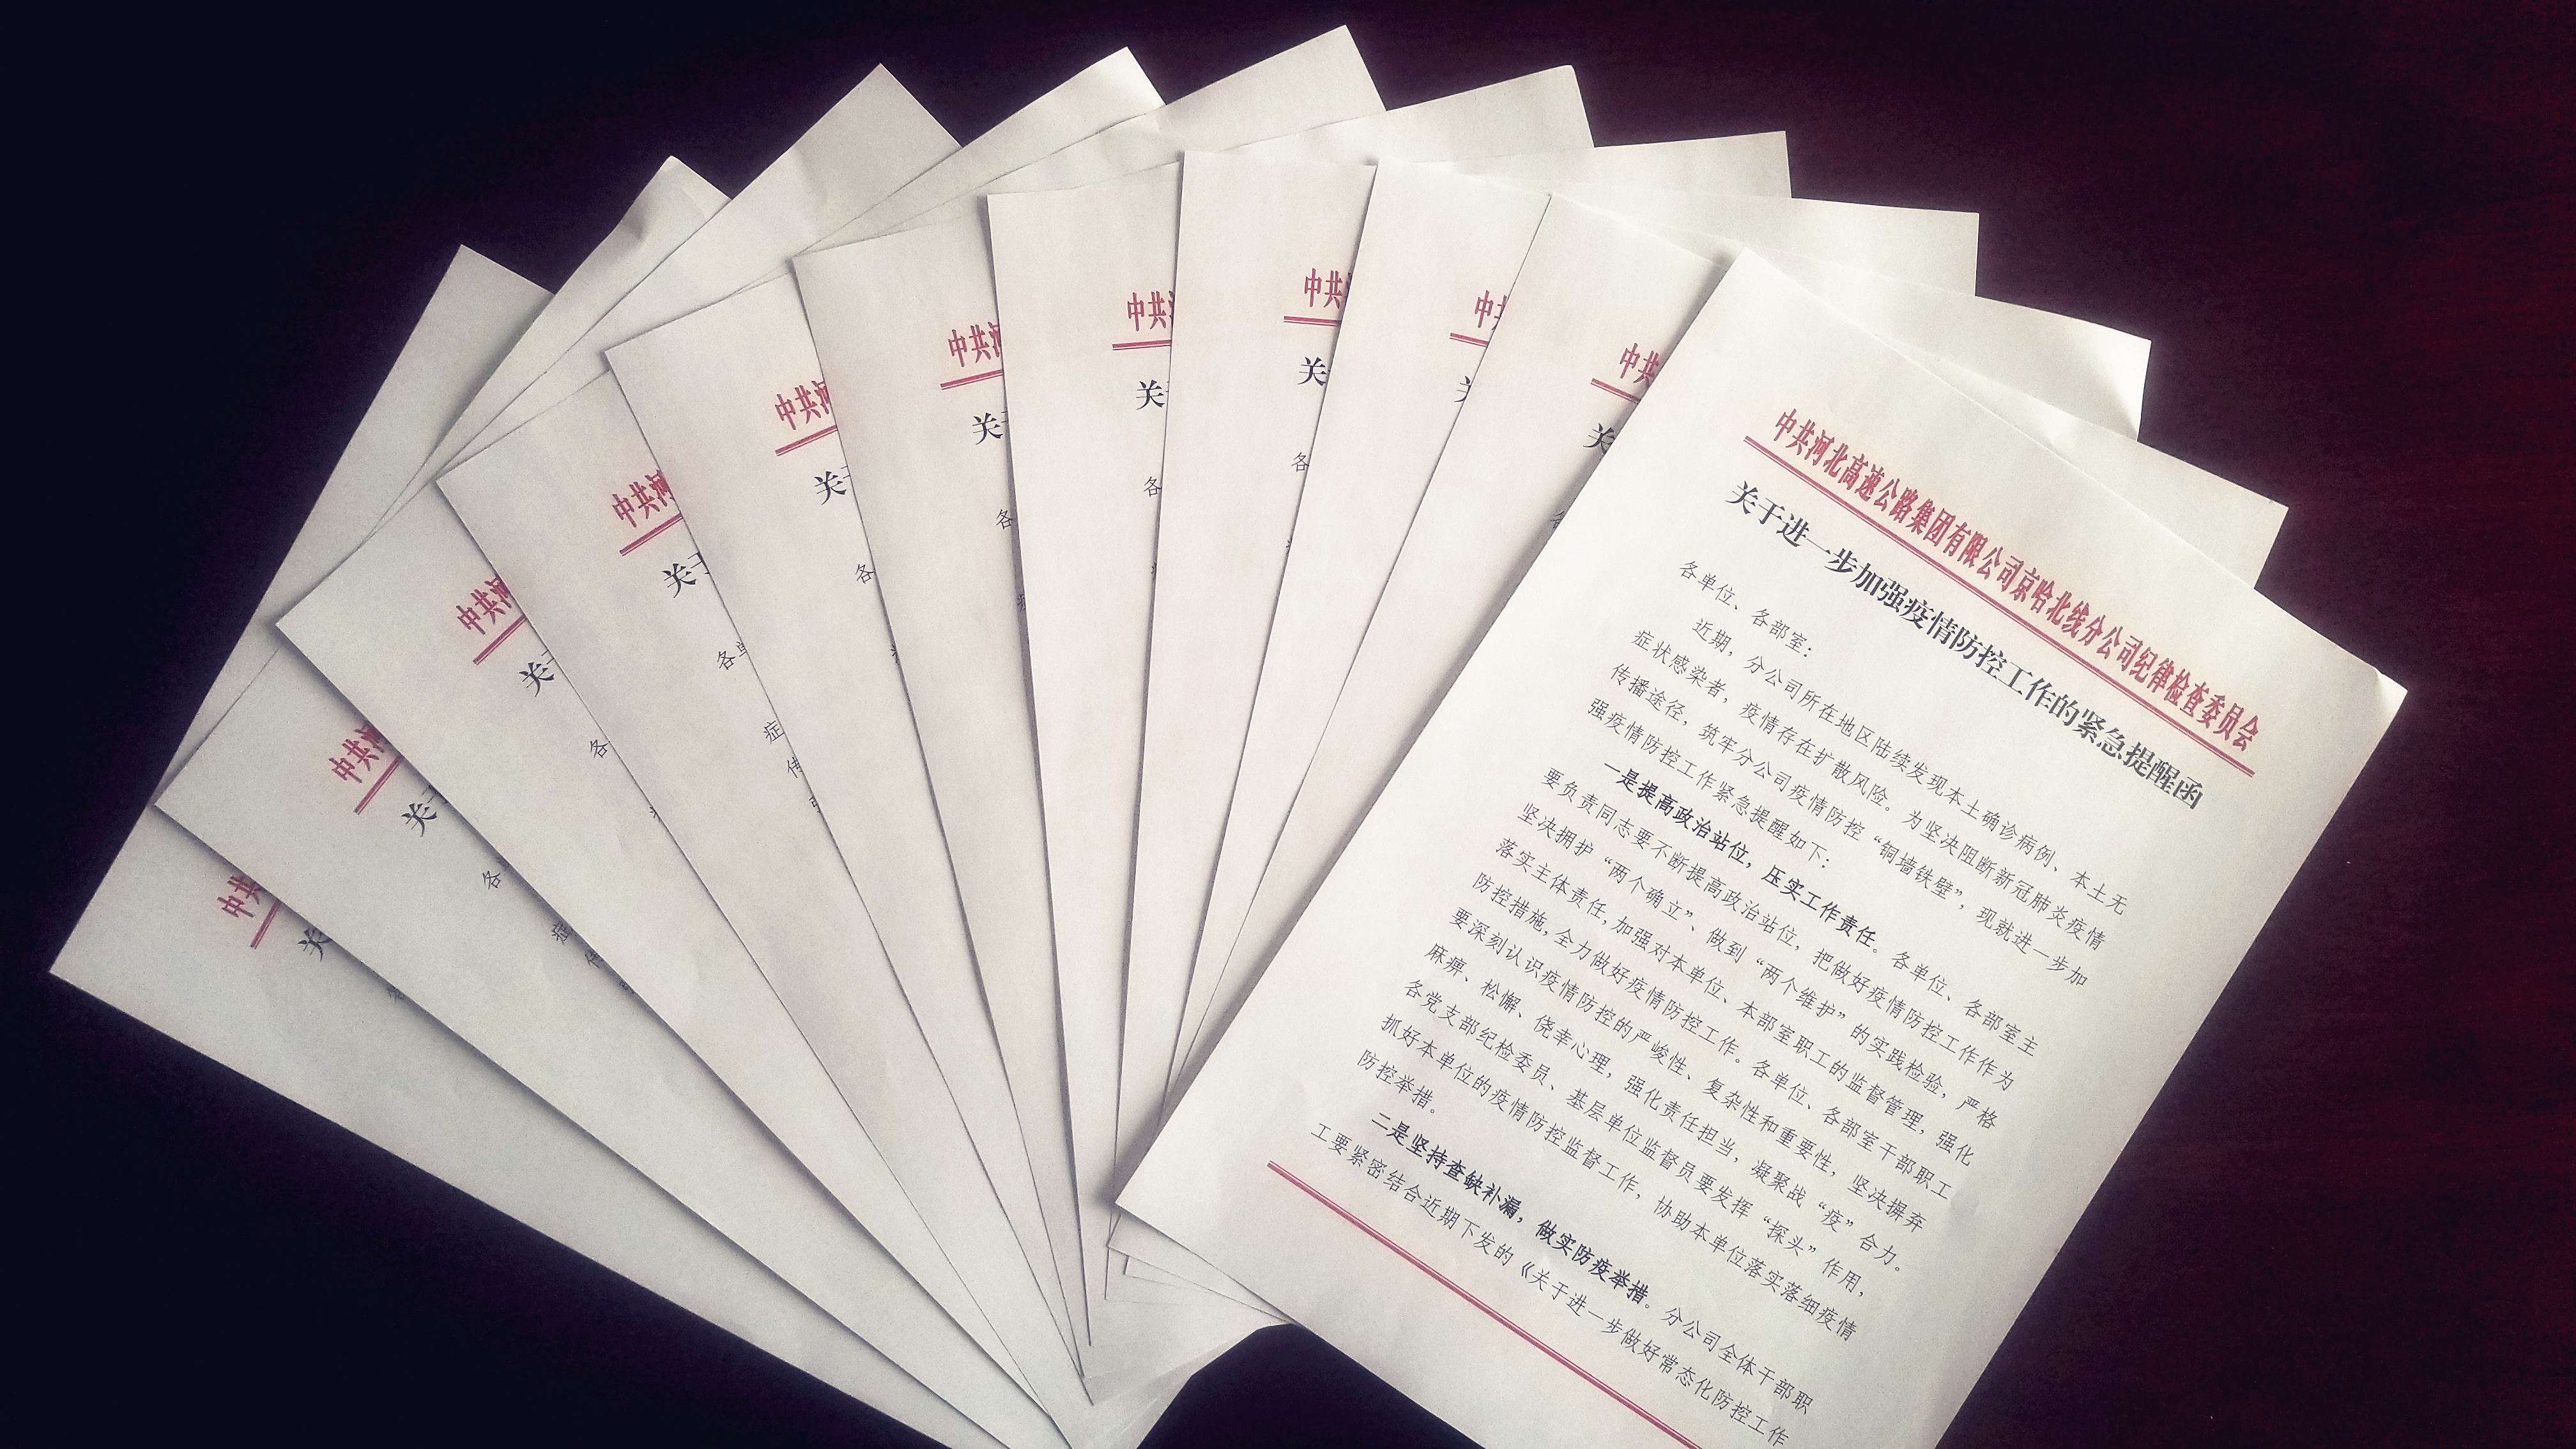 中共河
关
各
中共河
关于
各单
症
传
中共河
关于
各
中共河
关于
各单
症
传
中共河
关于
各
中共河
关
各
中共河
关
各
中共河
关
各
中共
关
中共
关
各
中共河北高速公路集团有限公司京哈北线分公司纪律检查委员会
关于进一步加强疫情防控工作的紧急提醒函
各单位、各部室：
近期，分公司所在地区陆续发现本土确诊病例、本土无
症状感染者，疫情存在扩散风险。为坚决阻断新冠肺炎疫情
传播途径，筑牢分公司疫情防控“铜墙铁壁”，现就进一步加
强疫情防控工作紧急提醒如下：
一是提高政治站位，压实工作责任。各单位、各部室主
要负责同志要不断提高政治站位，把做好疫情防控工作作为
坚决拥护“两个确立”、做到“两个维护”的实践检验，严格
落实主体责任，加强对本单位、本部室职工的监督管理，强化
防控措施，全力做好疫情防控工作。各单位、各部室干部职工
要深刻认识疫情防控的严峻性、复杂性和重要性，坚决摒弃
麻痹、松懈、侥幸心理，强化责任担当，凝聚战“疫”合力。
各党支部纪检委员、基层单位监督员要发挥“探头”作用，
抓好本单位的疫情防控监督工作，协助本单位落实落细疫情
防控举措。
二是坚持查缺补漏，做实防疫举措。分公司全体干部职
工要紧密结合近期下发的《关于进一步做好常态化防控工作